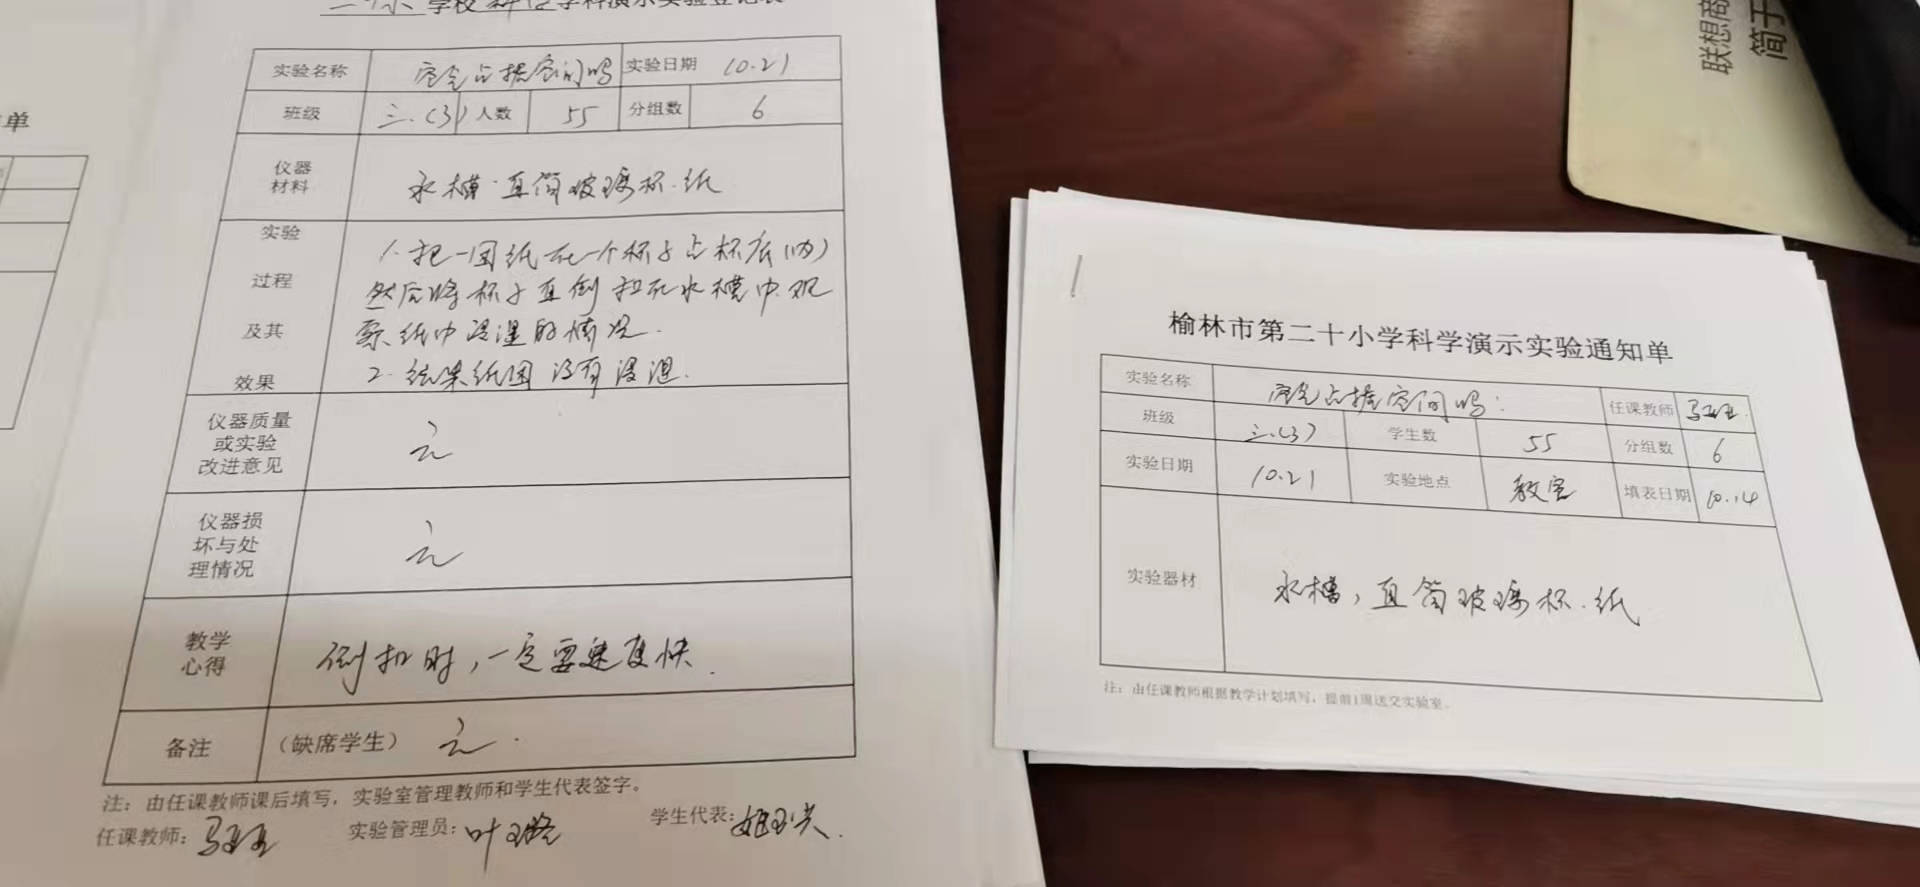 学校科学学科演示实验登记表
实验名称 空气占据空间吗 实验日期 10.21
班级 三.(3) 人数 55 分组数 6
仪器
材料
水槽.直筒玻璃杯.纸
实验
过程
及其
效果
1.把一团纸在一个杯子占杯底(内)
然后将杯子直倒扣在水槽中.观
察纸巾浸湿的情况.
2.结果纸团没有浸湿.
仪器质量
或实验
改进意见
无
仪器损
坏与处
理情况
无
教学
心得
倒扣时，一定要速度快.
备注 （缺席学生） 无.
注：由任课教师课后填写，实验室管理教师和学生代表签字。
任课教师： 实验管理员：叶 学生代表：姬
单
榆林市第二十小学科学演示实验通知单
实验名称 空气占据空间吗: 任课教师
班级 三.(3) 学生数 55 分组数 6
实验日期 10.21 实验地点 教室 填表日期 10.14
实验器材 水槽，直筒玻璃杯.纸
注：由任课教师根据教学计划填写，提前1周送交实验室。
联想商
简于